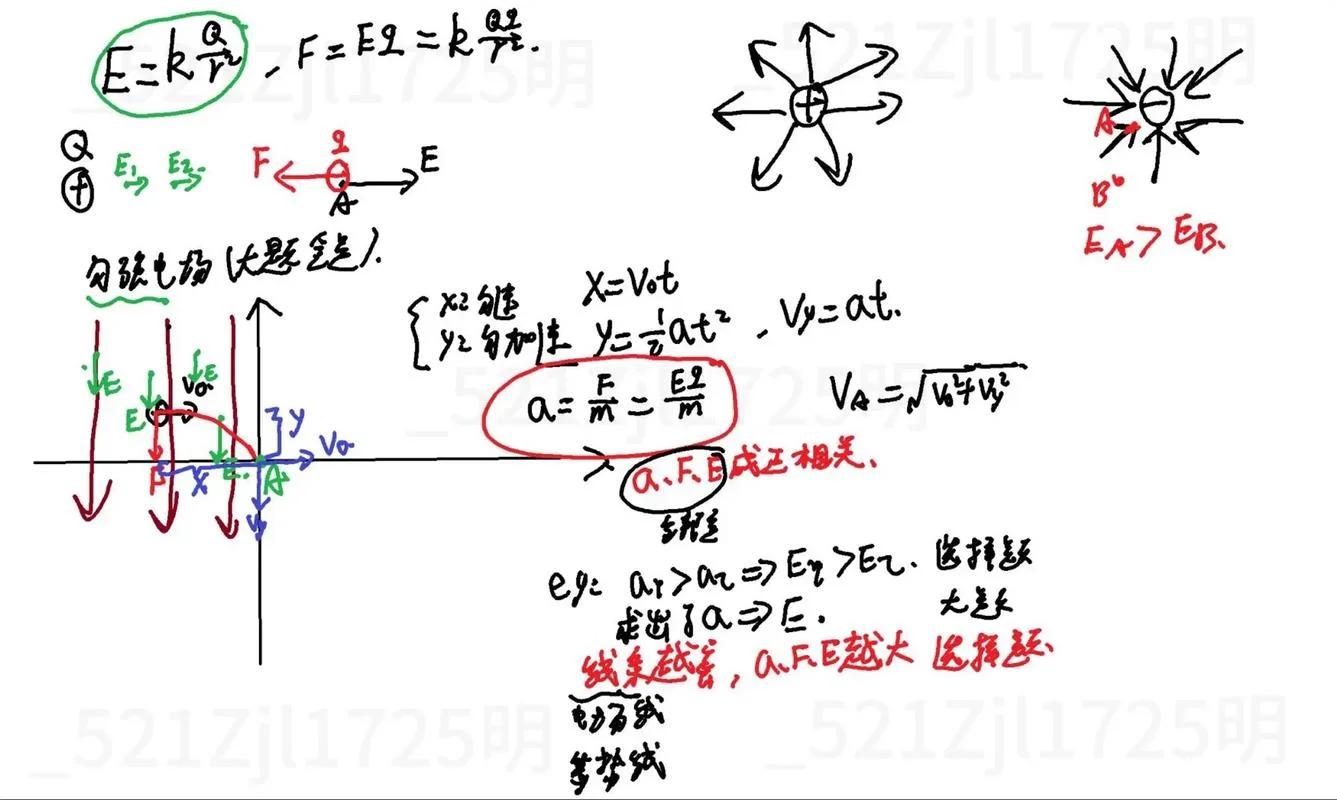 E=k\frac{Q}{r^2}, F=Eq=k\frac{Qq}{r^2}.
Q
+
E₁ E₂
F q E
A
+
−
A
B
E_A>E_B.
匀强电场(大题重点).
E E
V₀
E
F X E A
y V₀
x: 匀速 x=V₀t
y: 匀加速 y=\frac{1}{2}at², Vy=at.
a=\frac{F}{m}=\frac{Eq}{m}
V_A=\sqrt{V₀²+Vy²}
a、F、E成正相关、
eg: a₁>a₂⇒E₁>E₂. 选择题
求出了a⇒E. 大题
线条越密, a、F、E越大 选择题、
电场线
等势线
_521Zjl1725明
_521Zjl1725明
_521Zjl1725明
_521Zjl1725明
_521Zjl1725明